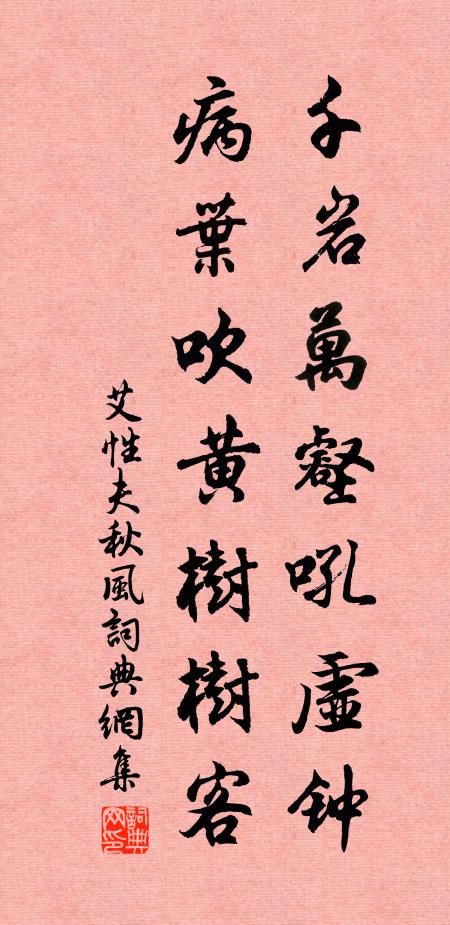 千岩萬壑吼虛钟
病葉吹黄樹樹客
艾性夫秋風詞典網集
詞典網印